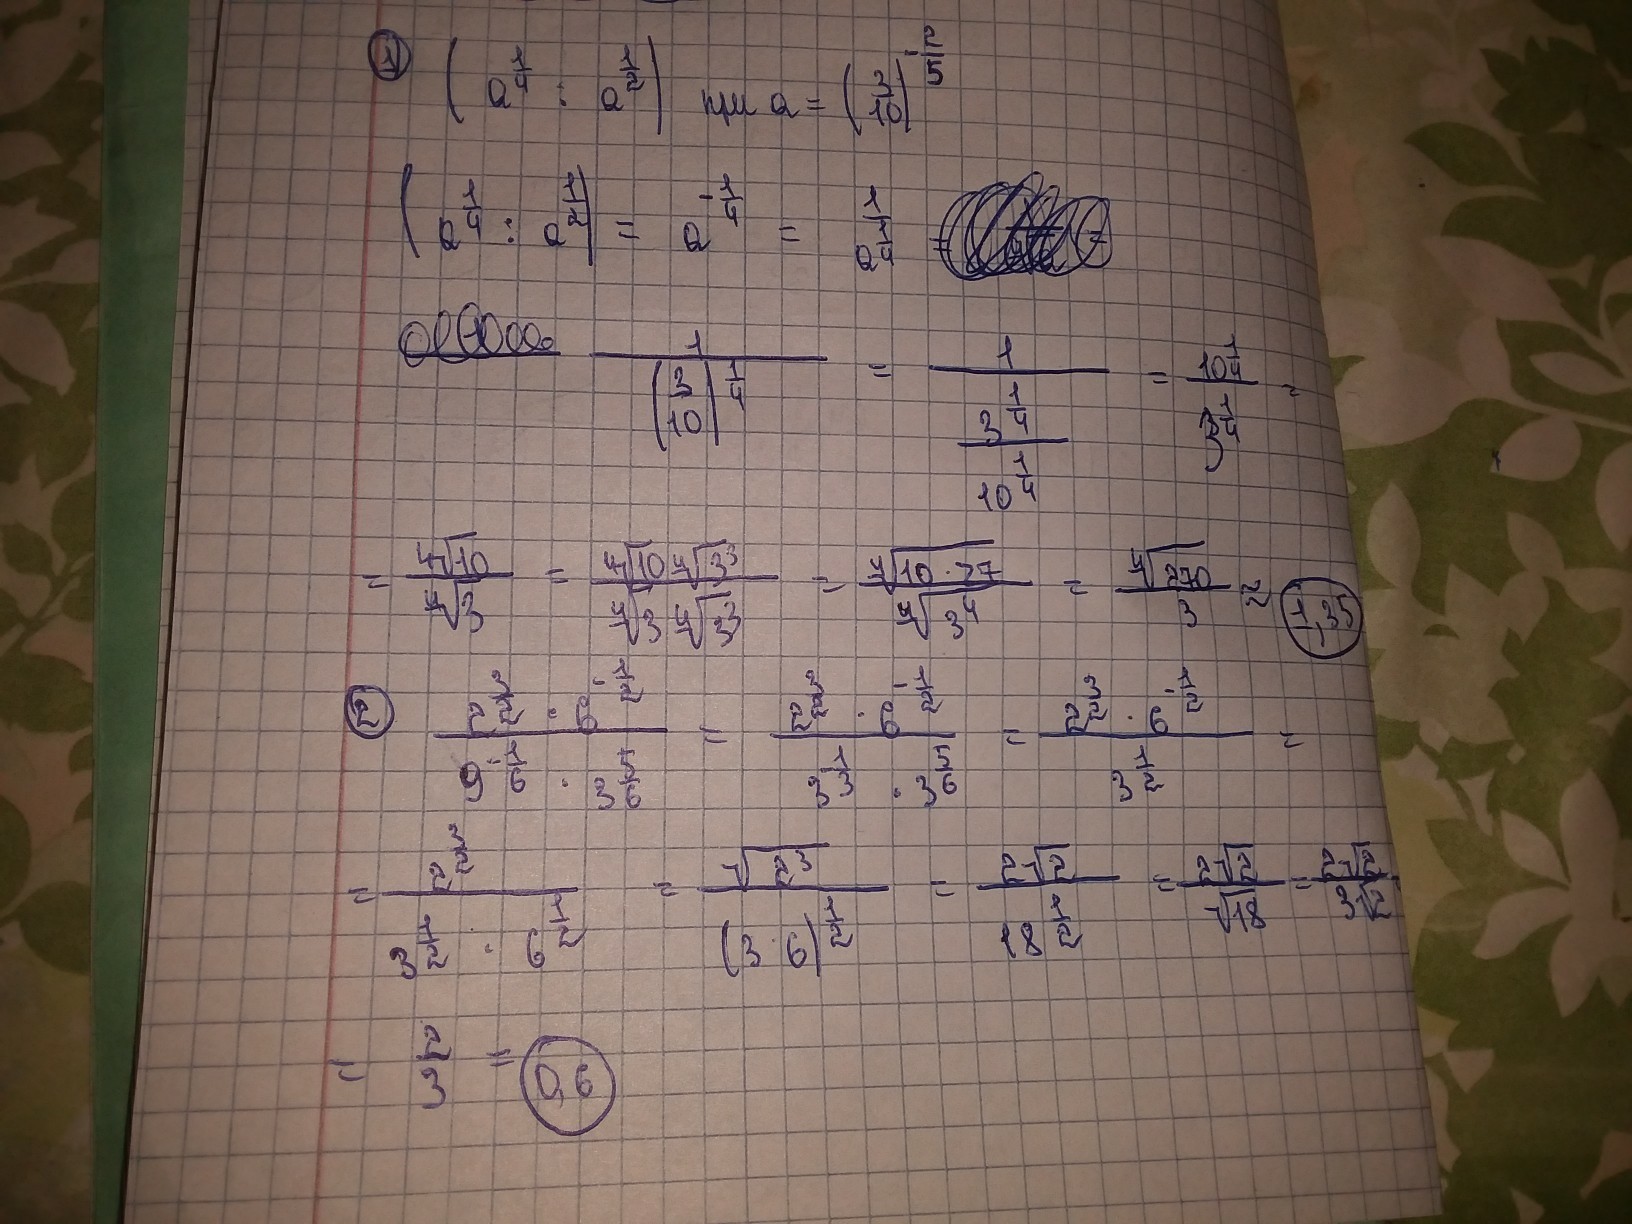 ① (a^{1/4} : a^{1/2}) при a = (3/10)^{-2/5}
(a^{1/4} : a^{1/2}) = a^{-1/4} = 1/a^{1/4} =
1/(3/10)^{1/4} = 1/(3^{1/4}/10^{1/4}) = 10^{1/4}/3^{1/4} =
= ∜10/∜3 = ∜10 ∜3³/∜3 ∜3³ = ∜(10·27)/∜3⁴ = ∜270/3 ≈ 1,35
② 2^{3/2} · 6^{-1/2}/9^{-1/6} · 3^{5/6} = 2^{3/2} · 6^{-1/2}/3^{-1/3} · 3^{5/6} = 2^{3/2} · 6^{-1/2}/3^{1/2} =
= 2^{3/2}/3^{1/2} · 6^{1/2} = √2³/(3·6)^{1/2} = 2√2/18^{1/2} = 2√2/√18 = 2√2/3√2
= 2/3 = 0,6